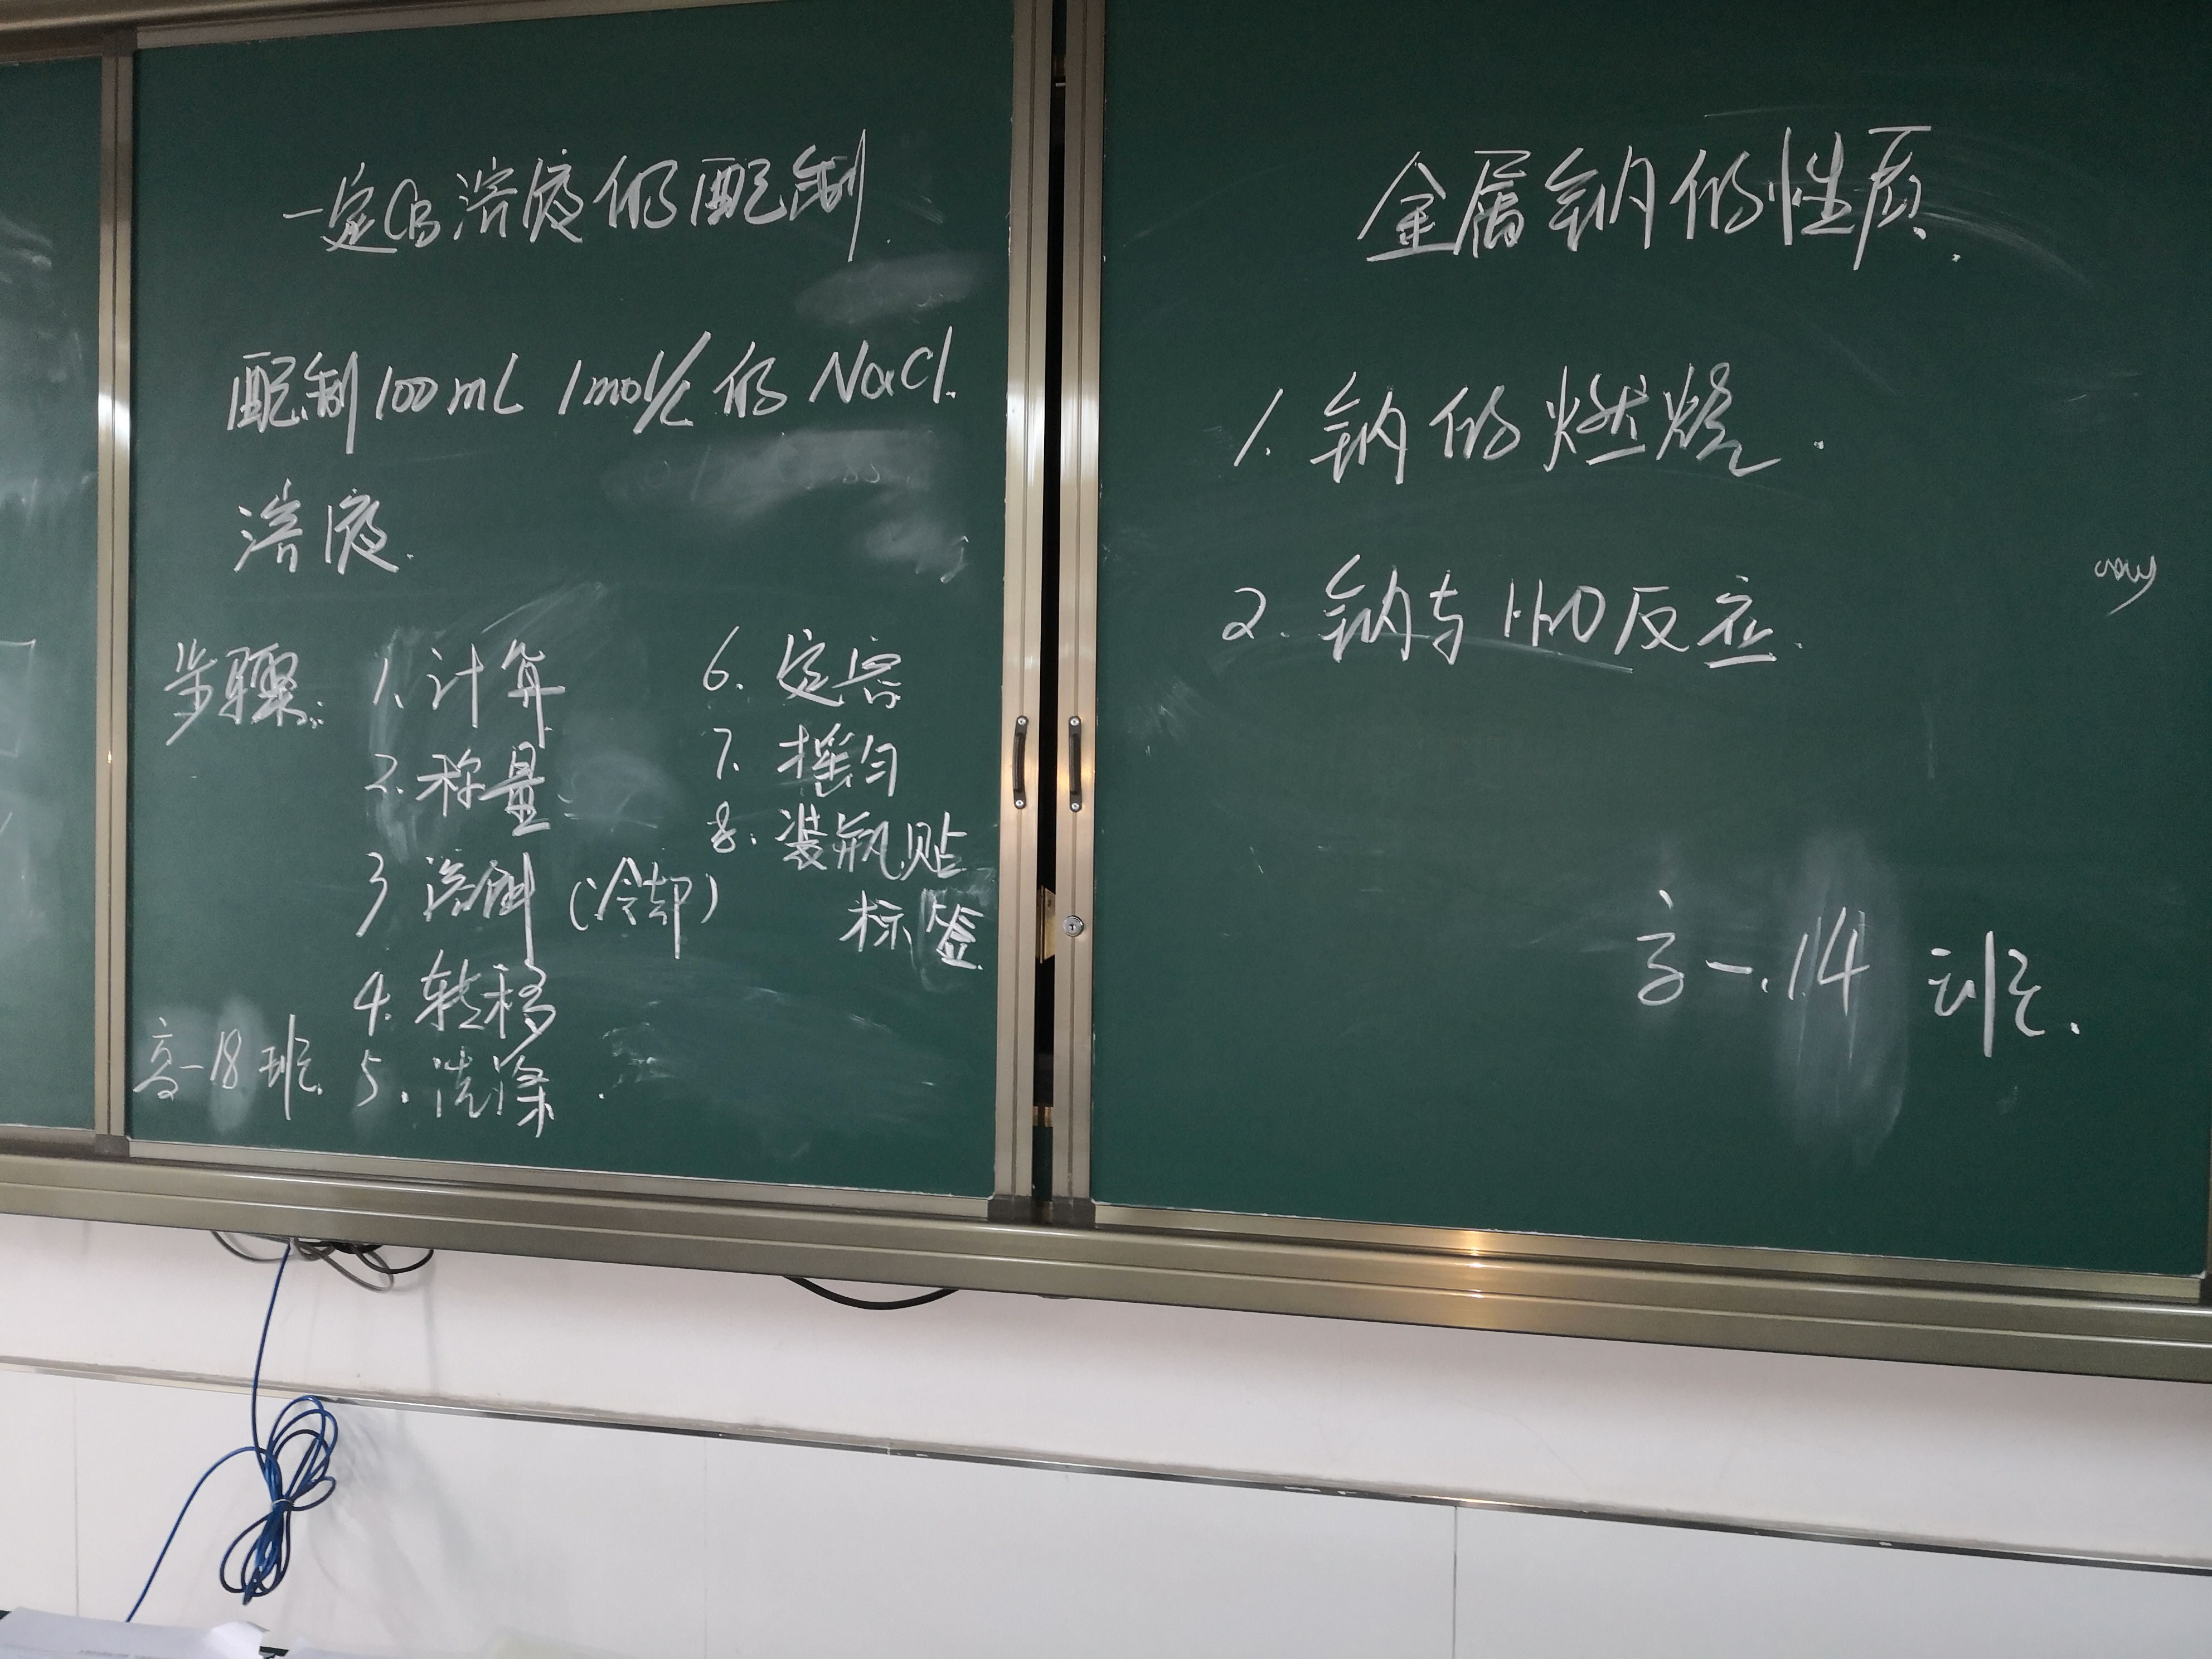 一定CB溶液的配制
配制100mL 1mol/L的NaCl
溶液.
步骤: 1.计算
2.称量
3 溶解(冷却)
4.转移
5.洗涤.
6.定容
7.摇匀
8.装瓶贴
标签.
高一18班.
金属钠的性质.
1.钠的燃烧.
2.钠与H2O反应.
高一.14班.